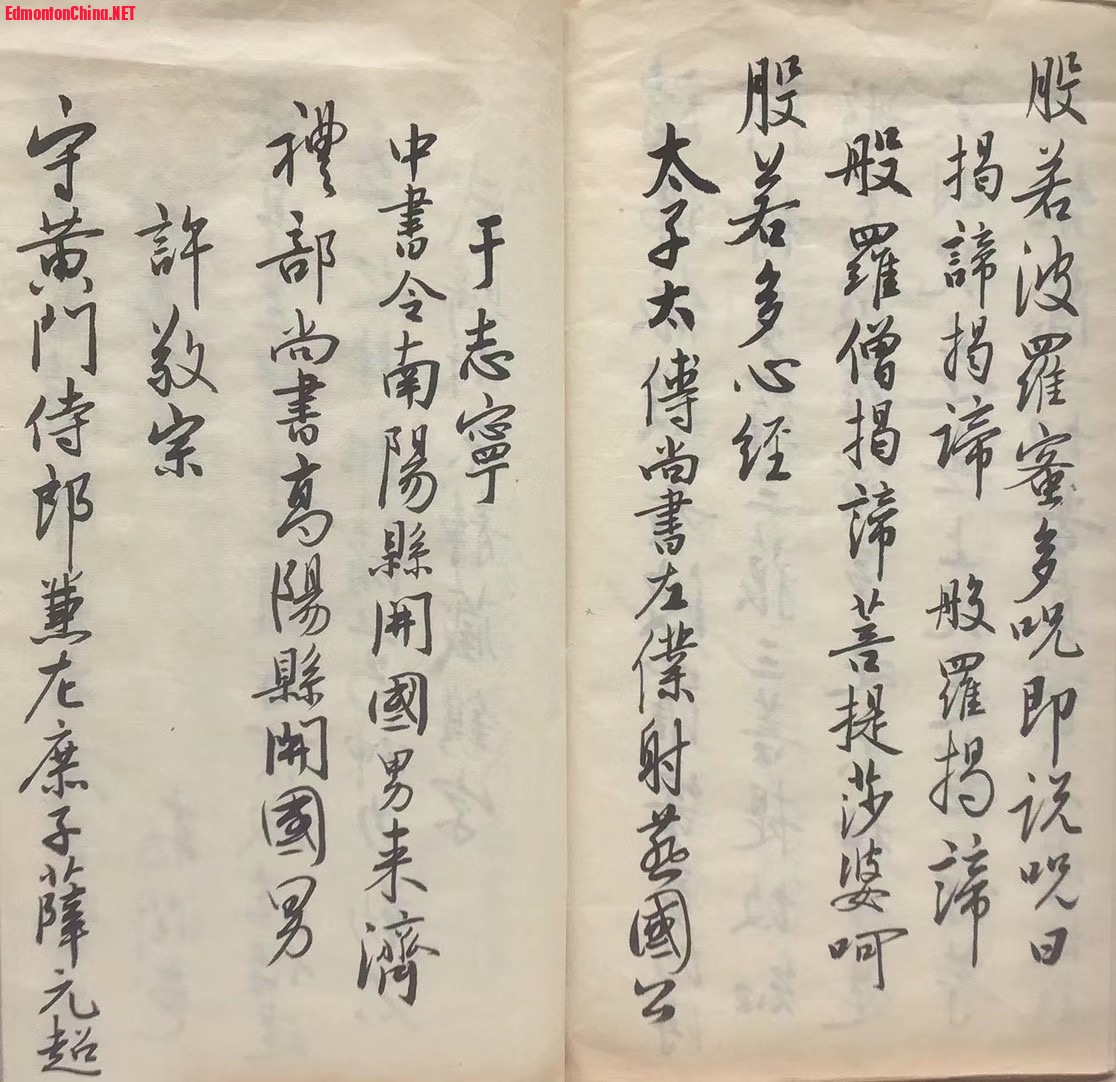 EdmontonChina.NET
般若波羅蜜多咒即说咒曰
揭諦揭諦 般羅揭諦
般羅僧揭諦菩提莎婆呵
般若多心经
太子太傅尚書左僕射燕國公
于志寧
中書令南陽縣開國男来濟
禮部尚書高陽縣開國男
許敬宗
守黄門侍郎兼左庶子薛元超